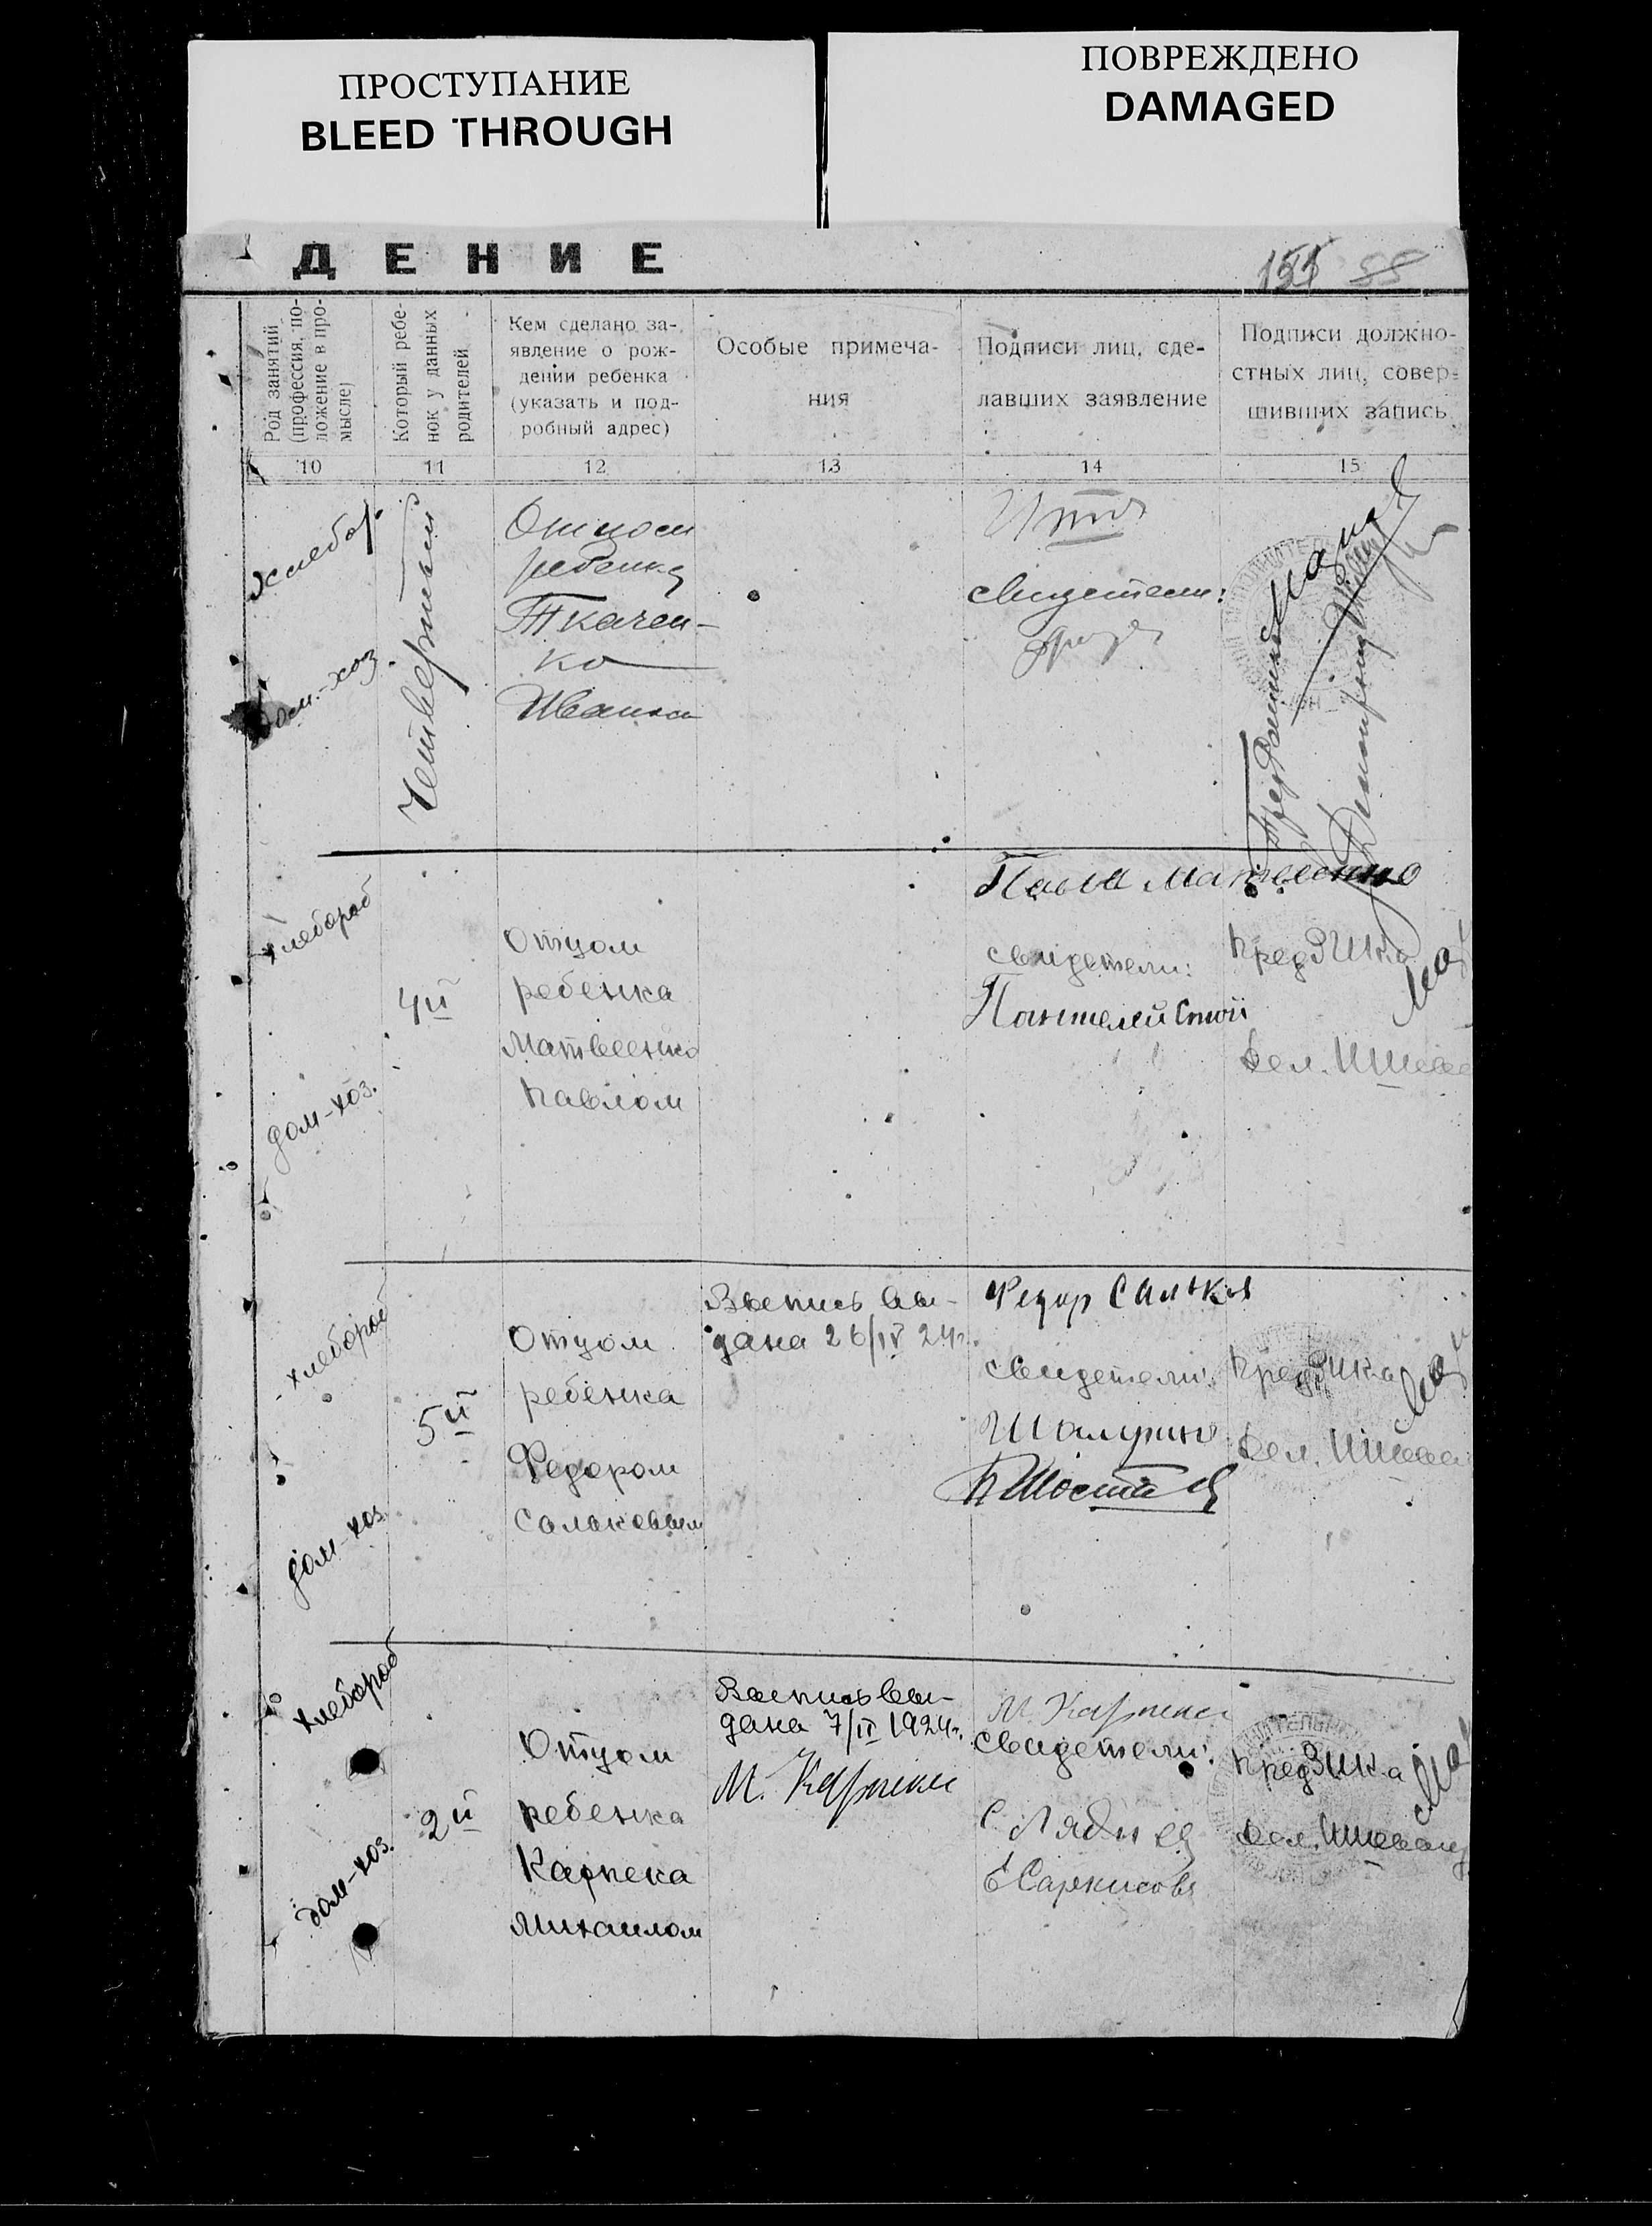 ПРОСТУПАНИЕ
BLEED THROUGH
ПОВРЕЖДЕНО
DAMAGED
ДЕНИЕ
151 88
Род занятий
(профессия, по-
ложение в про-
мысле)
Который ребе-
нок у данных
родителей
Кем сделано за-
явление о рож-
дении ребенка
(указать и под-
робный адрес)
Особые примеча-
ния
Подписи лиц, сде-
лавших заявление
Подписи должно-
стных лиц, совер-
шивших запись
10 11 12 13 14 15
Хлебор.
дом.-хоз.
Четвертый
Отцом
ребенка
Ткачен-
ко
Иваном
свидетели:
хлебороб
дом-хоз.
4й
Отцом
ребенка
Матвеенко
Павлом
Павел Матвеенко
свидетели:
Пантелей
Пред ЗИК-а
Дел.
хлебороб
дом-хоз.
5й
Отцом
ребенка
Федором
Сальковым
Выпись вы-
дана 26/IV 24г.
Федор Сальков
свидетели:
Пред ЗИК-а
Дел.
хлебороб
дом-хоз.
2й
Отцом
ребенка
Карпека
Михаилом
Выпись вы-
дана 7/II 1924г.
М. Карпека
М. Карпека
свидетели:
Е Саркисова
Пред ЗИК-а
Дел.